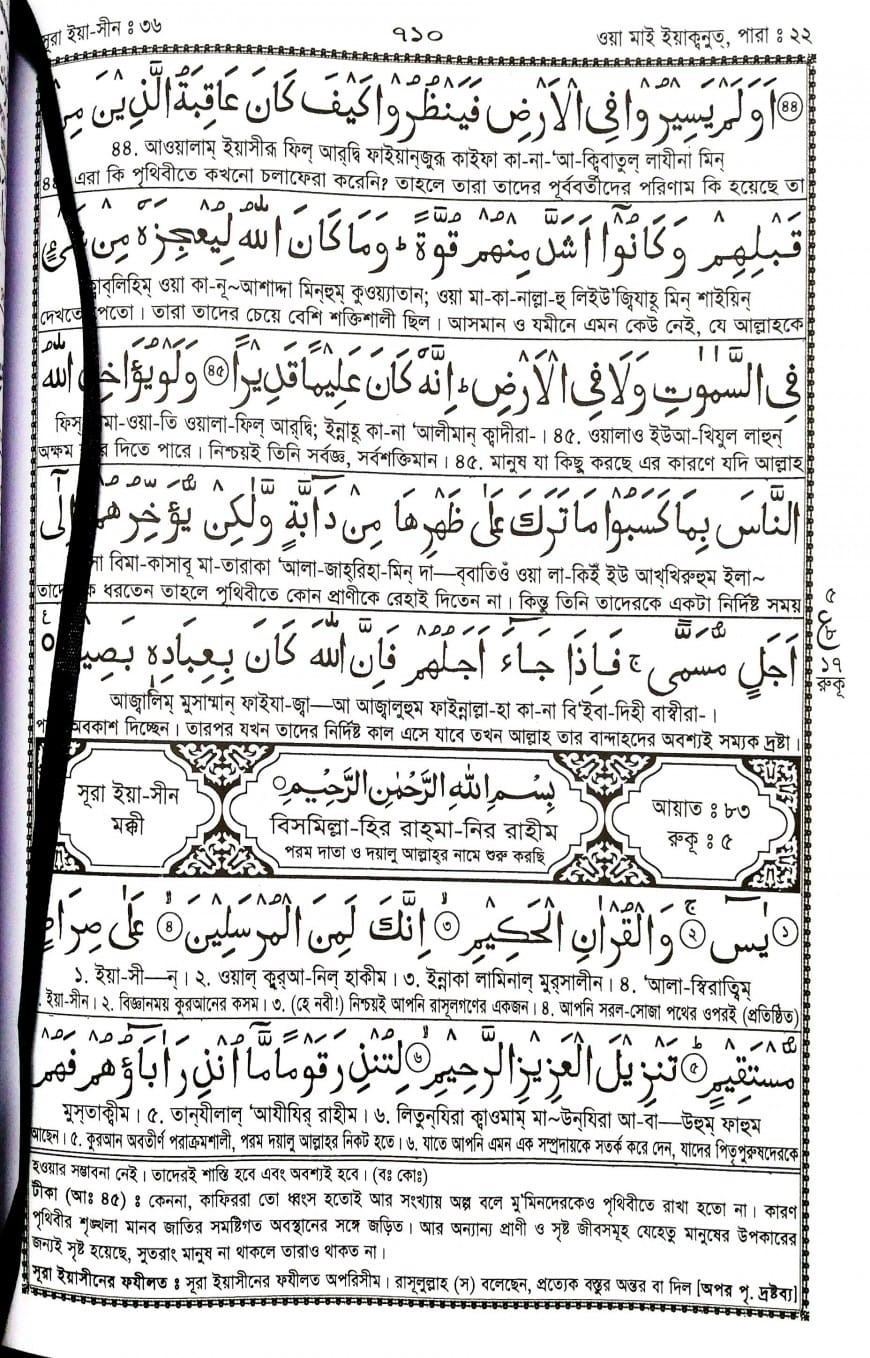 সূরা ইয়া-সীন : ৩৬
৭১০
ওয়া মাই ইয়াক্বনুত্, পারা : ২২
﴿৪৪﴾ اَوَلَمْ يَسِيْرُوْا فِى الْاَرْضِ فَيَنْظُرُوْا كَيْفَ كَانَ عَاقِبَةُ الَّذِيْنَ مِنْ
৪৪. আওয়ালাম্ ইয়াসীরূ ফিল্ আর্‌দ্বি ফাইয়ান্‌জুরূ কাইফা কা-না-'আ-ক্বিবাতুল্ লাযীনা মিন্
এরা কি পৃথিবীতে কখনো চলাফেরা করেনি? তাহলে তারা তাদের পূর্ববর্তীদের পরিণাম কি হয়েছে তা
قَبْلِهِمْ وَكَانُوْٓا اَشَدَّ مِنْهُمْ قُوَّةً ؕ وَمَا كَانَ اللّٰهُ لِيُعْجِزَهٗ مِنْ شَىْءٍ
ক্বাব্‌লিহিম্ ওয়া কা-নূ~আশাদ্দা মিন্‌হুম্ কুওয়্যাতান; ওয়া মা-কা-নাল্লা-হু লিইউ'জ্বিযাহূ মিন্ শাইয়িন্
দেখতে পেতো। তারা তাদের চেয়ে বেশি শক্তিশালী ছিল। আসমান ও যমীনে এমন কেউ নেই, যে আল্লাহকে
فِى السَّمٰوٰتِ وَلَا فِى الْاَرْضِ ؕ اِنَّهٗ كَانَ عَلِيْمًا قَدِيْرًا ﴿৪৫﴾ وَلَوْ يُؤَاخِذُ اللّٰهُ
ফিস্ সামা-ওয়া-তি ওয়ালা-ফিল্ আর্‌দ্বি; ইন্নাহূ কা-না 'আলীমান্ ক্বাদীরা-। ৪৫. ওয়ালাও ইউআ-খিযুল লাহুন্
অক্ষম করে দিতে পারে। নিশ্চয়ই তিনি সর্বজ্ঞ, সর্বশক্তিমান। ৪৫. মানুষ যা কিছু করছে এর কারণে যদি আল্লাহ
النَّاسَ بِمَا كَسَبُوْا مَا تَرَكَ عَلٰى ظَهْرِهَا مِنْ دَآبَّةٍ وَّلٰكِنْ يُّؤَخِّرُهُمْ اِلٰٓى
না বিমা-কাসাবূ মা-তারাকা 'আলা-জাহ্‌রিহা-মিন্ দা—ব্বাতিওঁ ওয়া লা-কিইঁ ইউ আখ্‌খিরুহুম ইলা~
তাদেরকে ধরতেন তাহলে পৃথিবীতে কোন প্রাণীকে রেহাই দিতেন না। কিন্তু তিনি তাদেরকে একটা নির্দিষ্ট সময়
اَجَلٍ مُّسَمًّى ۚ فَاِذَا جَآءَ اَجَلُهُمْ فَاِنَّ اللّٰهَ كَانَ بِعِبَادِهٖ بَصِيْرًا
৫
ع
৮
১৭
রুকূ
আজ্বালিম্ মুসাম্মান্ ফাইযা-জ্বা—আ আজ্বালুহুম ফাইন্নাল্লা-হা কা-না বি'ইবা-দিহী বাস্বীরা-।
অবকাশ দিচ্ছেন। তারপর যখন তাদের নির্দিষ্ট কাল এসে যাবে তখন আল্লাহ তার বান্দাহদের অবশ্যই সম্যক দ্রষ্টা।
সূরা ইয়া-সীন
মক্কী
بِسْمِ اللّٰهِ الرَّحْمٰنِ الرَّحِيْمِ
বিসমিল্লা-হির রাহ্‌মা-নির রাহীম
পরম দাতা ও দয়ালু আল্লাহ্‌র নামে শুরু করছি
আয়াত : ৮৩
রুকূ : ৫
﴿১﴾ يٰسٓ ﴿২﴾ وَالْقُرْاٰنِ الْحَكِيْمِ ﴿৩﴾ اِنَّكَ لَمِنَ الْمُرْسَلِيْنَ ﴿৪﴾ عَلٰى صِرَاطٍ
১. ইয়া-সী—ন্। ২. ওয়াল্ কুরআ-নিল্ হাকীম। ৩. ইন্নাকা লামিনাল্ মুর্‌সালীন। ৪. 'আলা-স্বিরাত্বিম্
ইয়া-সীন। ২. বিজ্ঞানময় কুরআনের কসম। ৩. (হে নবী!) নিশ্চয়ই আপনি রাসূলগণের একজন। ৪. আপনি সরল-সোজা পথের ওপরই (প্রতিষ্ঠিত)
مُّسْتَقِيْمٍ ﴿৫﴾ تَنْزِيْلَ الْعَزِيْزِ الرَّحِيْمِ ﴿৬﴾ لِتُنْذِرَ قَوْمًا مَّآ اُنْذِرَ اٰبَآؤُهُمْ فَهُمْ
মুস্‌তাক্বীম। ৫. তান্‌যীলাল্ 'আযীযির্ রাহীম। ৬. লিতুন্‌যিরা ক্বাওমাম্ মা~উন্‌যিরা আ-বা—উহুম্ ফাহুম
আছেন। ৫. কুরআন অবতীর্ণ পরাক্রমশালী, পরম দয়ালু আল্লাহর নিকট হতে। ৬. যাতে আপনি এমন এক সম্প্রদায়কে সতর্ক করে দেন, যাদের পিতৃপুরুষদেরকে
হওয়ার সম্ভাবনা নেই। তাদেরই শাস্তি হবে এবং অবশ্যই হবে। (বঃ কোঃ)
টীকা (আঃ ৪৫) : কেননা, কাফিররা তো ধ্বংস হতোই আর সংখ্যায় অল্প বলে মু'মিনদেরকেও পৃথিবীতে রাখা হতো না। কারণ
পৃথিবীর শৃঙ্খলা মানব জাতির সমষ্টিগত অবস্থানের সঙ্গে জড়িত। আর অন্যান্য প্রাণী ও সৃষ্ট জীবসমূহ যেহেতু মানুষের উপকারের
জন্যই সৃষ্ট হয়েছে, সুতরাং মানুষ না থাকলে তারাও থাকত না।
সূরা ইয়াসীনের ফযীলত : সূরা ইয়াসীনের ফযীলত অপরিসীম। রাসূলুল্লাহ (স) বলেছেন, প্রত্যেক বস্তুর অন্তর বা দিল [অপর পৃ. দ্রষ্টব্য]